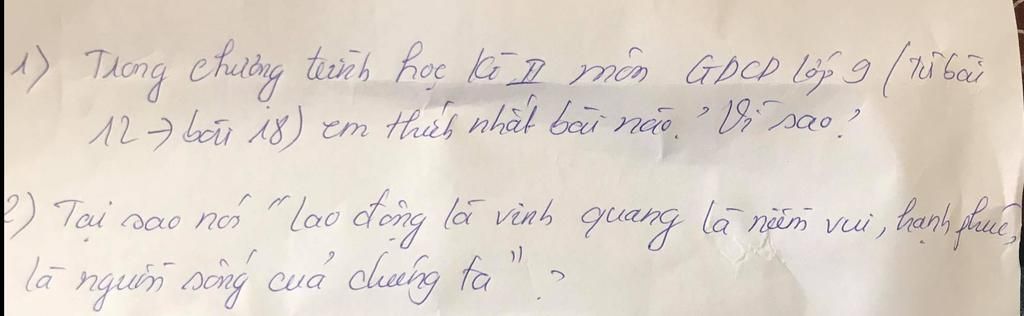 1) Trong chương trình học kì II môn GDCD lớp 9 (từ bài
12 → bài 18) em thích nhất bài nào? Vì sao?
2) Tại sao nói "lao động là vinh quang là niềm vui, hạnh phúc,
là nguồn sống của chúng ta"?